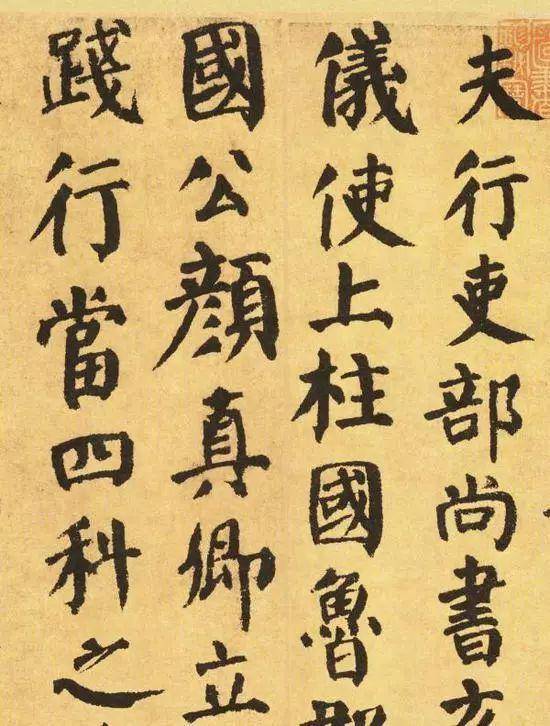 夫行吏部尚書
儀使上柱國魯
國公顏真卿立
踐行當四科之